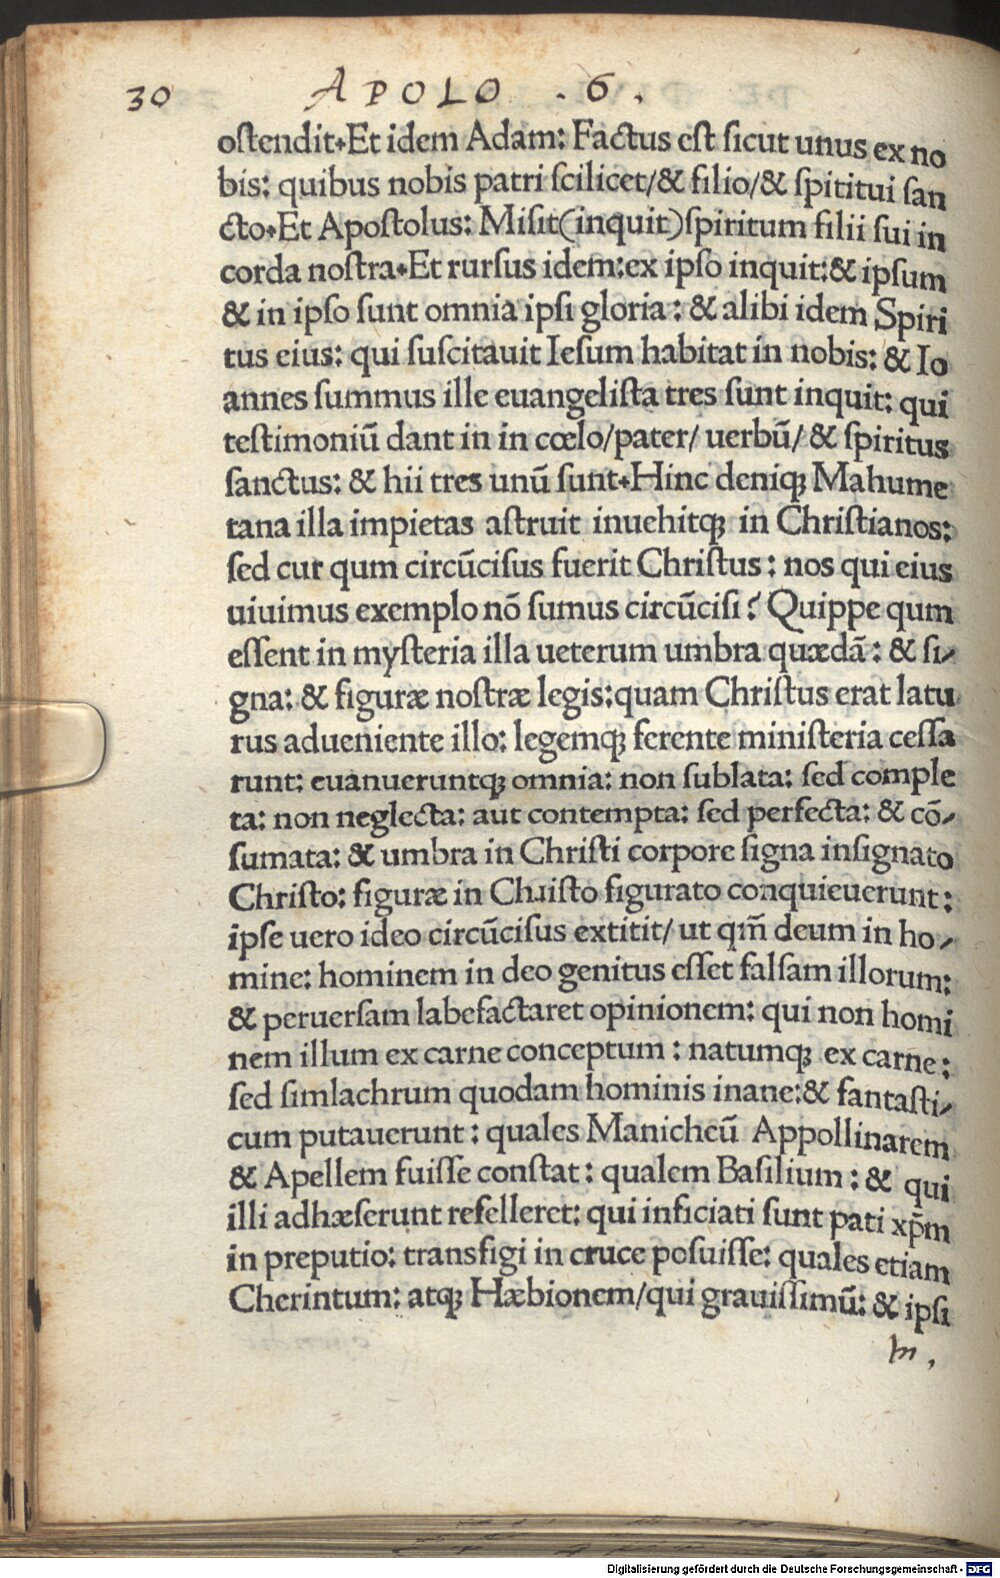 30 APOLO . 6 .
oſtendit.Et idem Adam: Factus eſt ſicut unus ex no
bis: quibus nobis patri ſcilicet/& filio/& ſpititui ſan
cto.Et Apoſtolus: Miſit(inquit)ſpiritum filii ſui in
corda noſtra.Et rurſus idem:ex ipſo inquit:& ipſum
& in ipſo ſunt omnia ipſi gloria: & alibi idem Spiri
tus eius: qui ſuſcitauit Ieſum habitat in nobis: & Io
annes ſummus ille euangeliſta tres ſunt inquit: qui
teſtimoniū dant in in cœlo/pater/ uerbū/ & ſpiritus
ſanctus: & hii tres unū ſunt.Hinc deniqꝫ Mahume
tana illa impietas aſtruit inuehitqꝫ in Chriſtianos:
ſed cur qum circūciſus fuerit Chriſtus: nos qui eius
uiuimus exemplo nō ſumus circūciſi? Quippe qum
eſſent in myſteria illa ueterum umbra quædā: & ſi-
gna: & figuræ noſtræ legis:quam Chriſtus erat latu
rus adueniente illo: legemqꝫ ferente miniſteria ceſſa
runt: euanueruntqꝫ omnia: non ſublata: ſed comple
ta: non neglecta: aut contempta: ſed perfecta: & cō-
ſumata: & umbra in Chriſti corpore ſigna inſignato
Chriſto: figuræ in Chriſto figurato conquieuerunt:
ipſe uero ideo circūciſus extitit/ ut qm̄ deum in ho-
mine: hominem in deo genitus eſſet falſam illorum:
& peruerſam labefactaret opinionem: qui non homi
nem illum ex carne conceptum: natumqꝫ ex carne:
ſed ſimlachrum quodam hominis inane:& fantaſti-
cum putauerunt: quales Manicheū Appollinarem
& Apellem fuiſſe conſtat: qualem Baſilium: & qui
illi adhæſerunt refelleret: qui inficiati ſunt pati xp̄m
in preputio: transfigi in cruce poſuiſſe: quales etiam
Cherintum: atqꝫ Hæbionem/qui grauiſſimū: & ipſi
in,
Digitalisierung gefördert durch die Deutsche Forschungsgemeinschaft - DFG